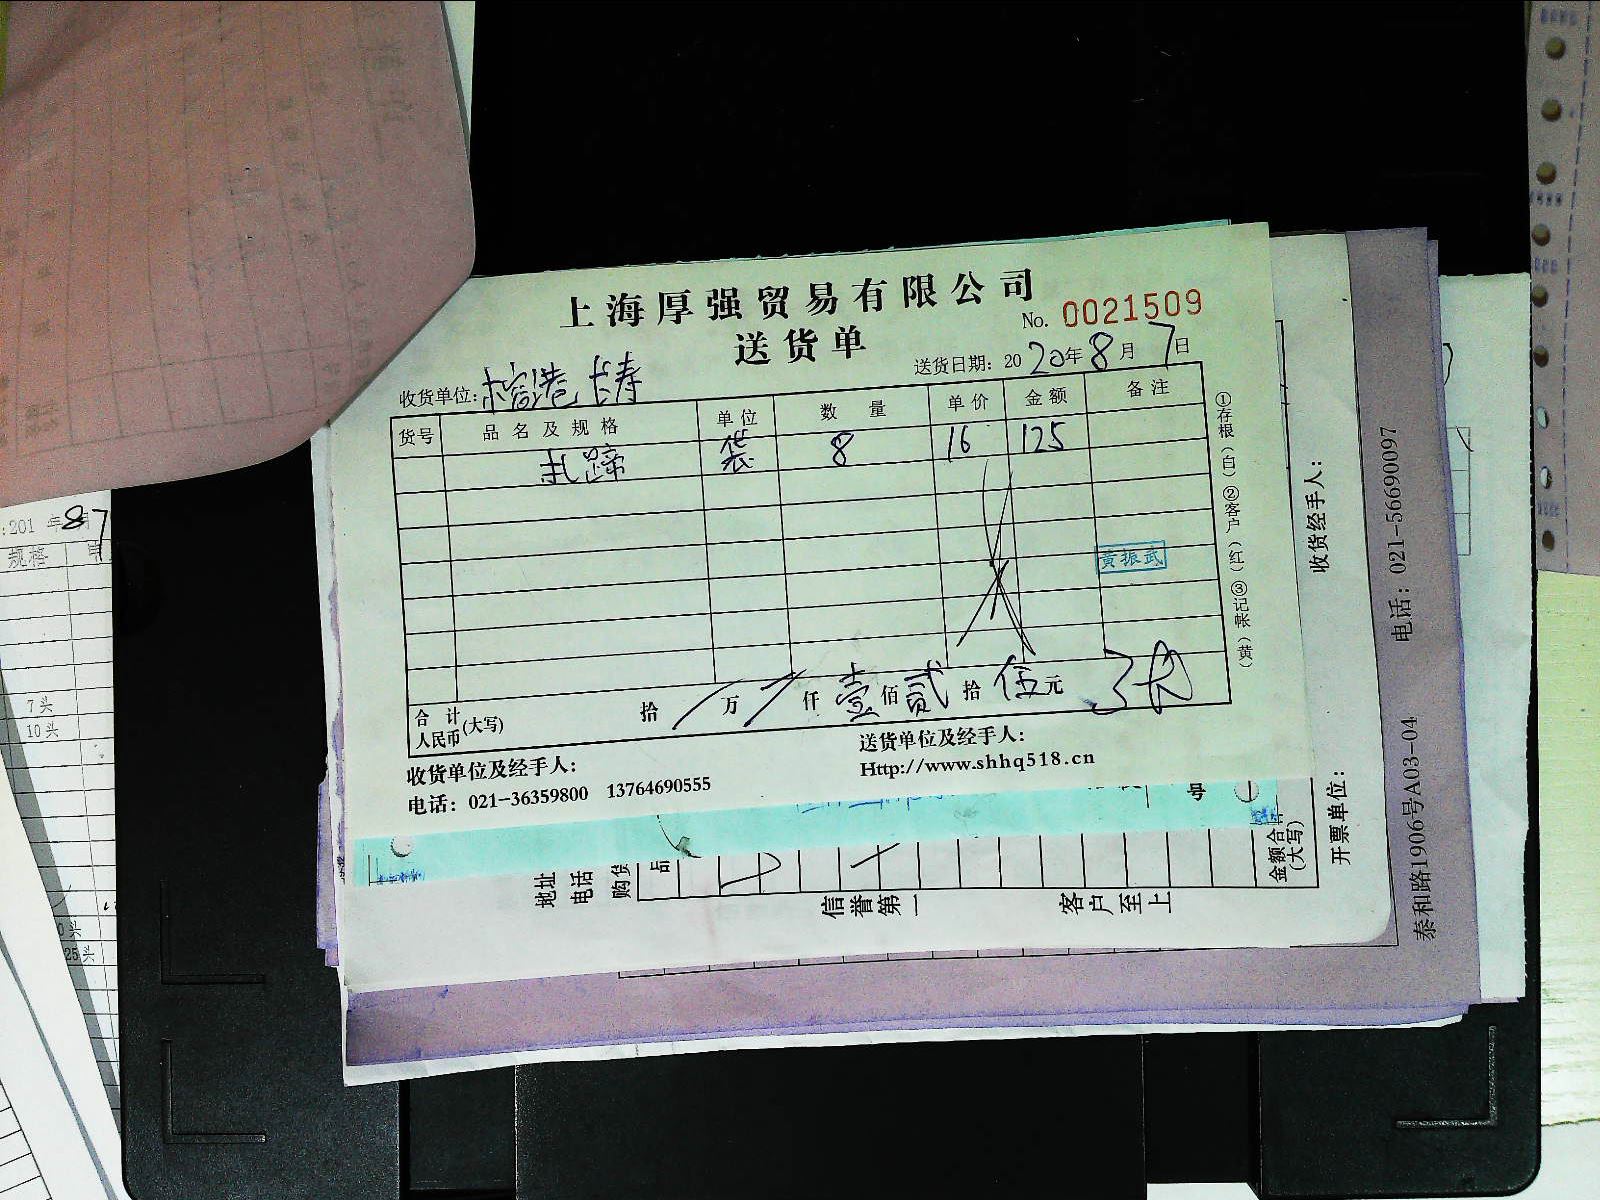 上海厚强贸易有限公司
No. 0021509
送货单
送货日期: 2020年8月7日
收货单位:
货号 品名及规格 单位 数量 单价 金额 备注
扎蹄 袋 8 16 125
黄振武
合计人民币(大写) 拾 万 仟 壹佰贰拾伍元
收货单位及经手人:
送货单位及经手人:
电话: 021-36359800 13764690555
Http://www.shhq518.cn
①存根(白)②客户(红)③记帐(黄)
号
地址
电话
购货
信誉第一
客户至上
金额合
(大写)
开票单位:
收货经手人:
泰和路1906号A03-04 电话: 021-56690097
:201 年8月7
规格 单
7头
10头
0头
25头